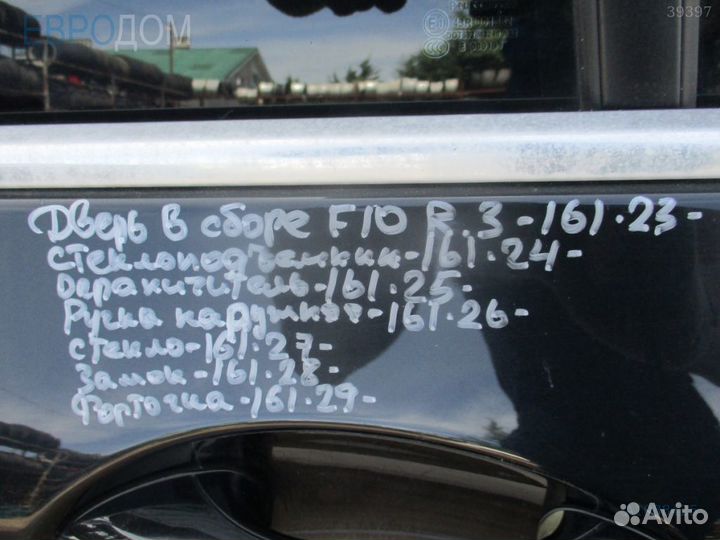 ЕВРОДОМ
39397
Дверь в сборе F10 R.З-161.23-
стеклоподъемник-161.24-
Ограничитель-161.25-
Ручка наружная-161.26-
стекло-161.27-
Замок-161.28-
Форточка-161.29-
Avito